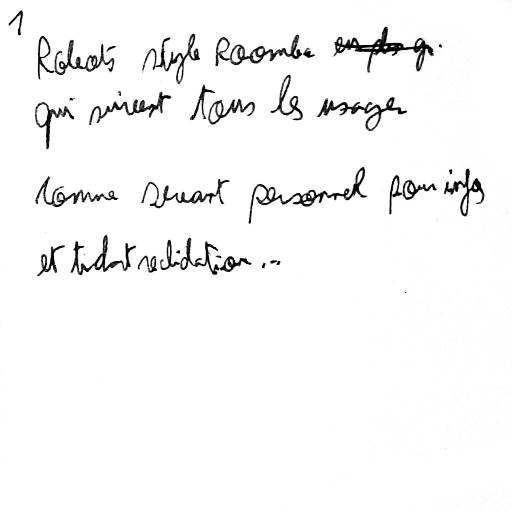 1
Robots style Roomba
qui suivent tous les usagers
comme servant personnel pour infos
et ticket validation...